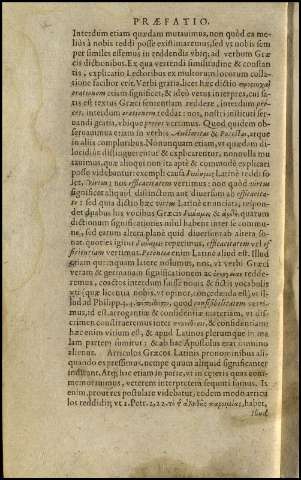 PRÆFATIO.
Interdum etiam quædam mutauimus, non quòd ea me-
liùs à nobis reddi posse existimaremus, sed vt nobis sem
per similes essemus in reddendis vbiq; ad verbum Græ
cis dictionibus. Ex qua vertendi similitudine & constan
tia, explicatio Lectoribus ex multorum locorum colla-
tione facilior erit. Verbi gratia, licet hæc dictio προσευχὴ
orationem etiam significet, & ideò vetus interpres, cui sa-
tis est textus Græci sententiam reddere, interdum pre-
ces, interdum orationem reddat: nos, nostri instituti ser-
uandi gratia, vbique preces vertimus. Quod quidem ob-
seruauimus etiam in verbis Auctoritas & Potestas, atque
in aliis compluribus. Nonnunquam etiam, vt quædam di-
lucidiùs distinguerentur & explicarentur, nonnulla mu
tauimus, quæ alioqui non ita aptè & commodè explicari
posse videbantur: exempli causa δύναμις Latinè reddi so-
let, virtus; nos efficacitatem vertimus: non quòd virtus
significet aliquid distinctum aut diuersum ab efficacita-
te: sed quia dictio hæc virtus Latinè enunciata, respon-
det duabus his vocibus Græcis δύναμις & ἀρετὴ, quarum
dictionum significationes nihil habent inter se commu-
ne, sed earum altera planè quid diuersum ab altera so-
nat. quoties igitur δύναμις reperimus, efficacitatem vel ef
ficientiam vertimus.
etiam quinquam latere nolumus, nos, vt verbi Græci
veram & germanam significationem
remus, coactos interdum fuisse nouis & fictis vocabulis
vti (quæ licentia nobis, vt opinor, concedenda est) vt il-
lud ad Philipp. quod confisibilitatem verti-
mus, id est arrogantiæ & confidentiæ materiam, vt dis-
crimen constitueremus inter & confidentiam:
hæc enim vitium est, & apud Latinos plerumque in ma
lam partem sumitur; & ab hac Apostolus erat omnino
alienus. Articulos Græcos Latinis pronominibus ali-
quando expressimus, nempe quum aliquid significanter
indicant. Atq; hac etiam in parte, vt in ceteris quas com-
memorauimus, veterem interpretem sequuti sumus. Is
enim, prout res postulare videbatur, eodem modo articu
los reddidit; vt 2. Petr. 2, 22. τὸ τῆς ἀληθοῦς παροιμίας, habet,
illud